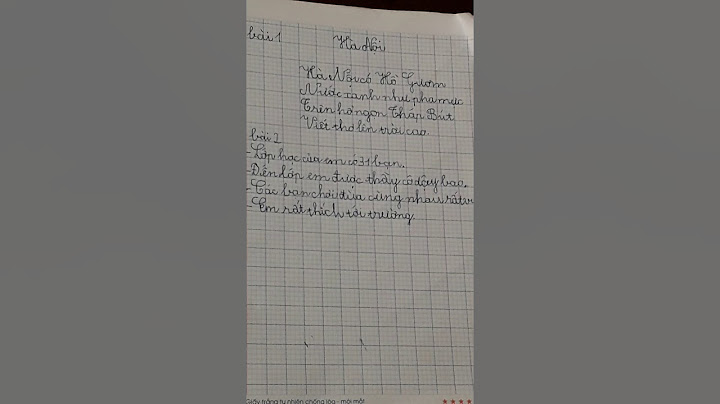 bài 1 Hà Nội
Hà Nội có Hồ Gươm
Nước xanh như pha mực
Trên hồ ngọn Tháp Bút
Viết thơ lên trời cao
bài 2
- Lớp học của em có 31 bạn.
- Đến lớp em được thầy cô dạy bao.
- Các bạn chơi đùa cùng nhau rất
- Em rất thích tới trường
Giấy trắng tự nhiên chống lóa - mỏi mắt